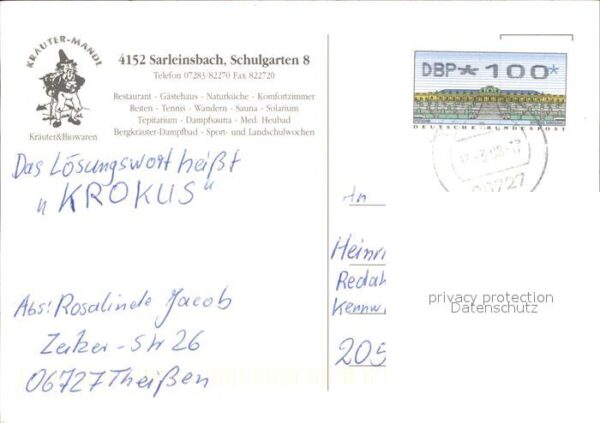 KRÄUTER-MANDL
Kräuter&Biowaren
4152 Sarleinsbach, Schulgarten 8
Telefon 07283/82270 Fax 822720
Restaurant - Gästehaus - Naturküche - Komfortzimmer
Reiten - Tennis - Wandern - Sauna - Solarium
Tepitarium - Dampfsauna - Med. Heubad
Bergkräuter-Dampfbad - Sport- und Landschulwochen
DBP * 100 *
DEUTSCHE BUNDESPOST
06727
Das Lösungswort heißt
„KROKUS"
Abs: Rosalinde Jacob
Zeitzer-Str 26
06727 Theißen
An
Heinri
Redak
Kennw
205
privacy protection
Datenschutz